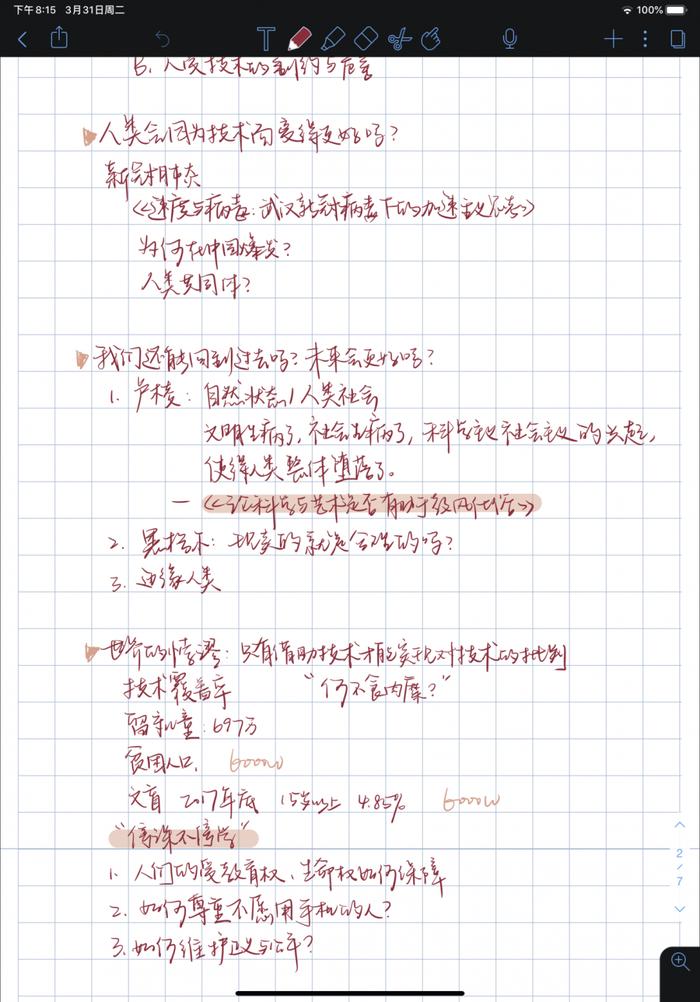 下午8:15 3月31日周二
100%
B. 人受技术的制约与危害
人类会因为技术而变得更好吗?
新冠肺炎
《速度与病毒:武汉新冠病毒下的加速主义思考》
为何在中国爆发?
人类共同体?
我们还能回到过去吗?未来会更好吗?
1. 卢梭:自然状态/人类社会
文明生病了,社会生病了,科学主义社会主义的兴起,
使得人类整体堕落了。
— 《论科学与艺术是否有助于敦风化俗》
2. 黑格尔:现实的就是合理的吗?
3. 边缘人类
世界的悖谬:只有借助技术才能实现对技术的批判
技术覆盖率 “何不食肉糜?”
留守儿童:697万
贫困人口. 6000W
文盲 2017年底 15岁以上 4.85% 6000W
“停课不停学”
1. 人们的受教育权、生命权如何保障
2. 如何尊重不愿用手机的人?
3. 如何维护正义与公平?
2
/
7